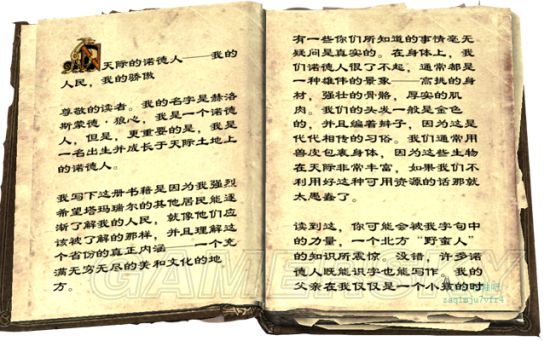 天际的诺德人——我的
人民，我的骄傲
尊敬的读者。我的名字是赫洛
斯蒙德·狼心，我是一个诺德
人，但是，更重要的是，我是
一名出生并成长于天际土地上
的诺德人。
我写下这册书籍是因为我强烈
希望塔玛瑞尔的其他居民能逐
渐了解我的人民，就像他们应
该被了解的那样，并且理解这
个省份的真正内涵——一个充
满无穷无尽的美和文化的地
方。
有一些你们所知道的事情毫无
疑问是真实的。在身体上，我
们诺德人很了不起，通常都是
一种雄伟的景象——高挑的身
材，强壮的骨骼，厚实的肌
肉。我们的头发一般是金色
的，并且编着辫子，因为这是
代代相传的习俗。我们通常用
兽皮包裹身体，因为这些生物
在天际非常丰富，如果我们不
利用好这种可用资源的话那就
太愚蠢了。
读到这，你可能会被我字句中
的力量，一个北方“野蛮人”
的知识所震惊。没错，许多诺
德人既能识字也能写作。我的
父亲在我仅仅是一个小孩的时
GAMERSKY
zaqimju7vfr4